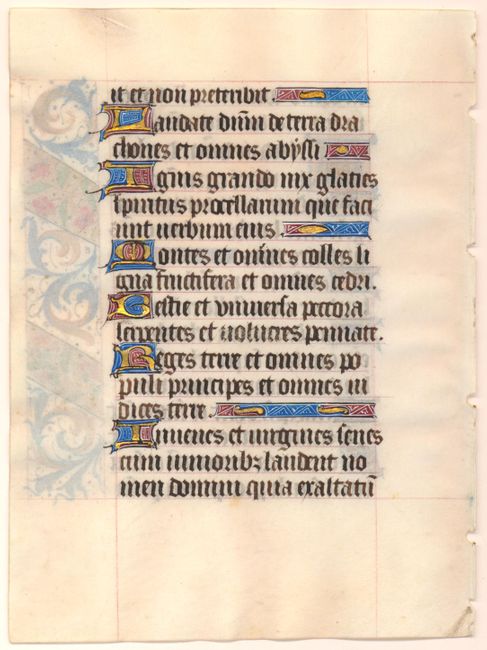 it et non preteribit.
Laudate dñm de terra dra
chones et omnes abyssi
Ignis grando nix glacies
spiritus procellarum que faci
unt verbum eius.
Montes et omnes colles li
gna fructifera et omnes cedri.
Bestie et universa peccora
serpentes et volucres pennate.
Reges terre et omnes po
puli principes et omnes iu
dices terre.
Iuvenes et virgines senes
cum iunioribꝫ laudent no
men domini quia exaltatũ